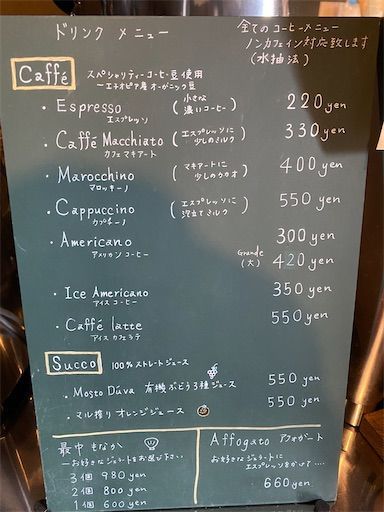 ドリンク メニュー
全てのコーヒーメニュー
ノンカフェイン対応致します
(水抽法)
Caffé
スペシャリティーコーヒー豆使用
〜エチオピア産オーガニック豆
・Espresso (小さな 濃いコーヒー) 220 yen
エスプレッソ
・Caffé Macchiato (エスプレッソに 少しのミルク) 330 yen
カフェマキアート
・Marocchino (マキアートに 少しのカカオ) 400 yen
マロッキーノ
・Cappuccino (エスプレッソに 泡立てミルク) 550 yen
カプチーノ
・Americano 300 yen
アメリカンコーヒー
Grande (大) 420 yen
・Ice Americano 350 yen
アイスコーヒー
・Caffé latte 550 yen
アイスカフェラテ
Succo 100%ストレートジュース
・Mosto Dúva 有機ぶどう3種ジュース 550 yen
・マル搾りオレンジジュース 550 yen
最中 もなか
〜お好きなジェラートをお選び下さい
3個 980 yen
2個 800 yen
1個 600 yen
Affogato アフォガート
お好きなジェラートに
エスプレッソをかけて....
660 yen